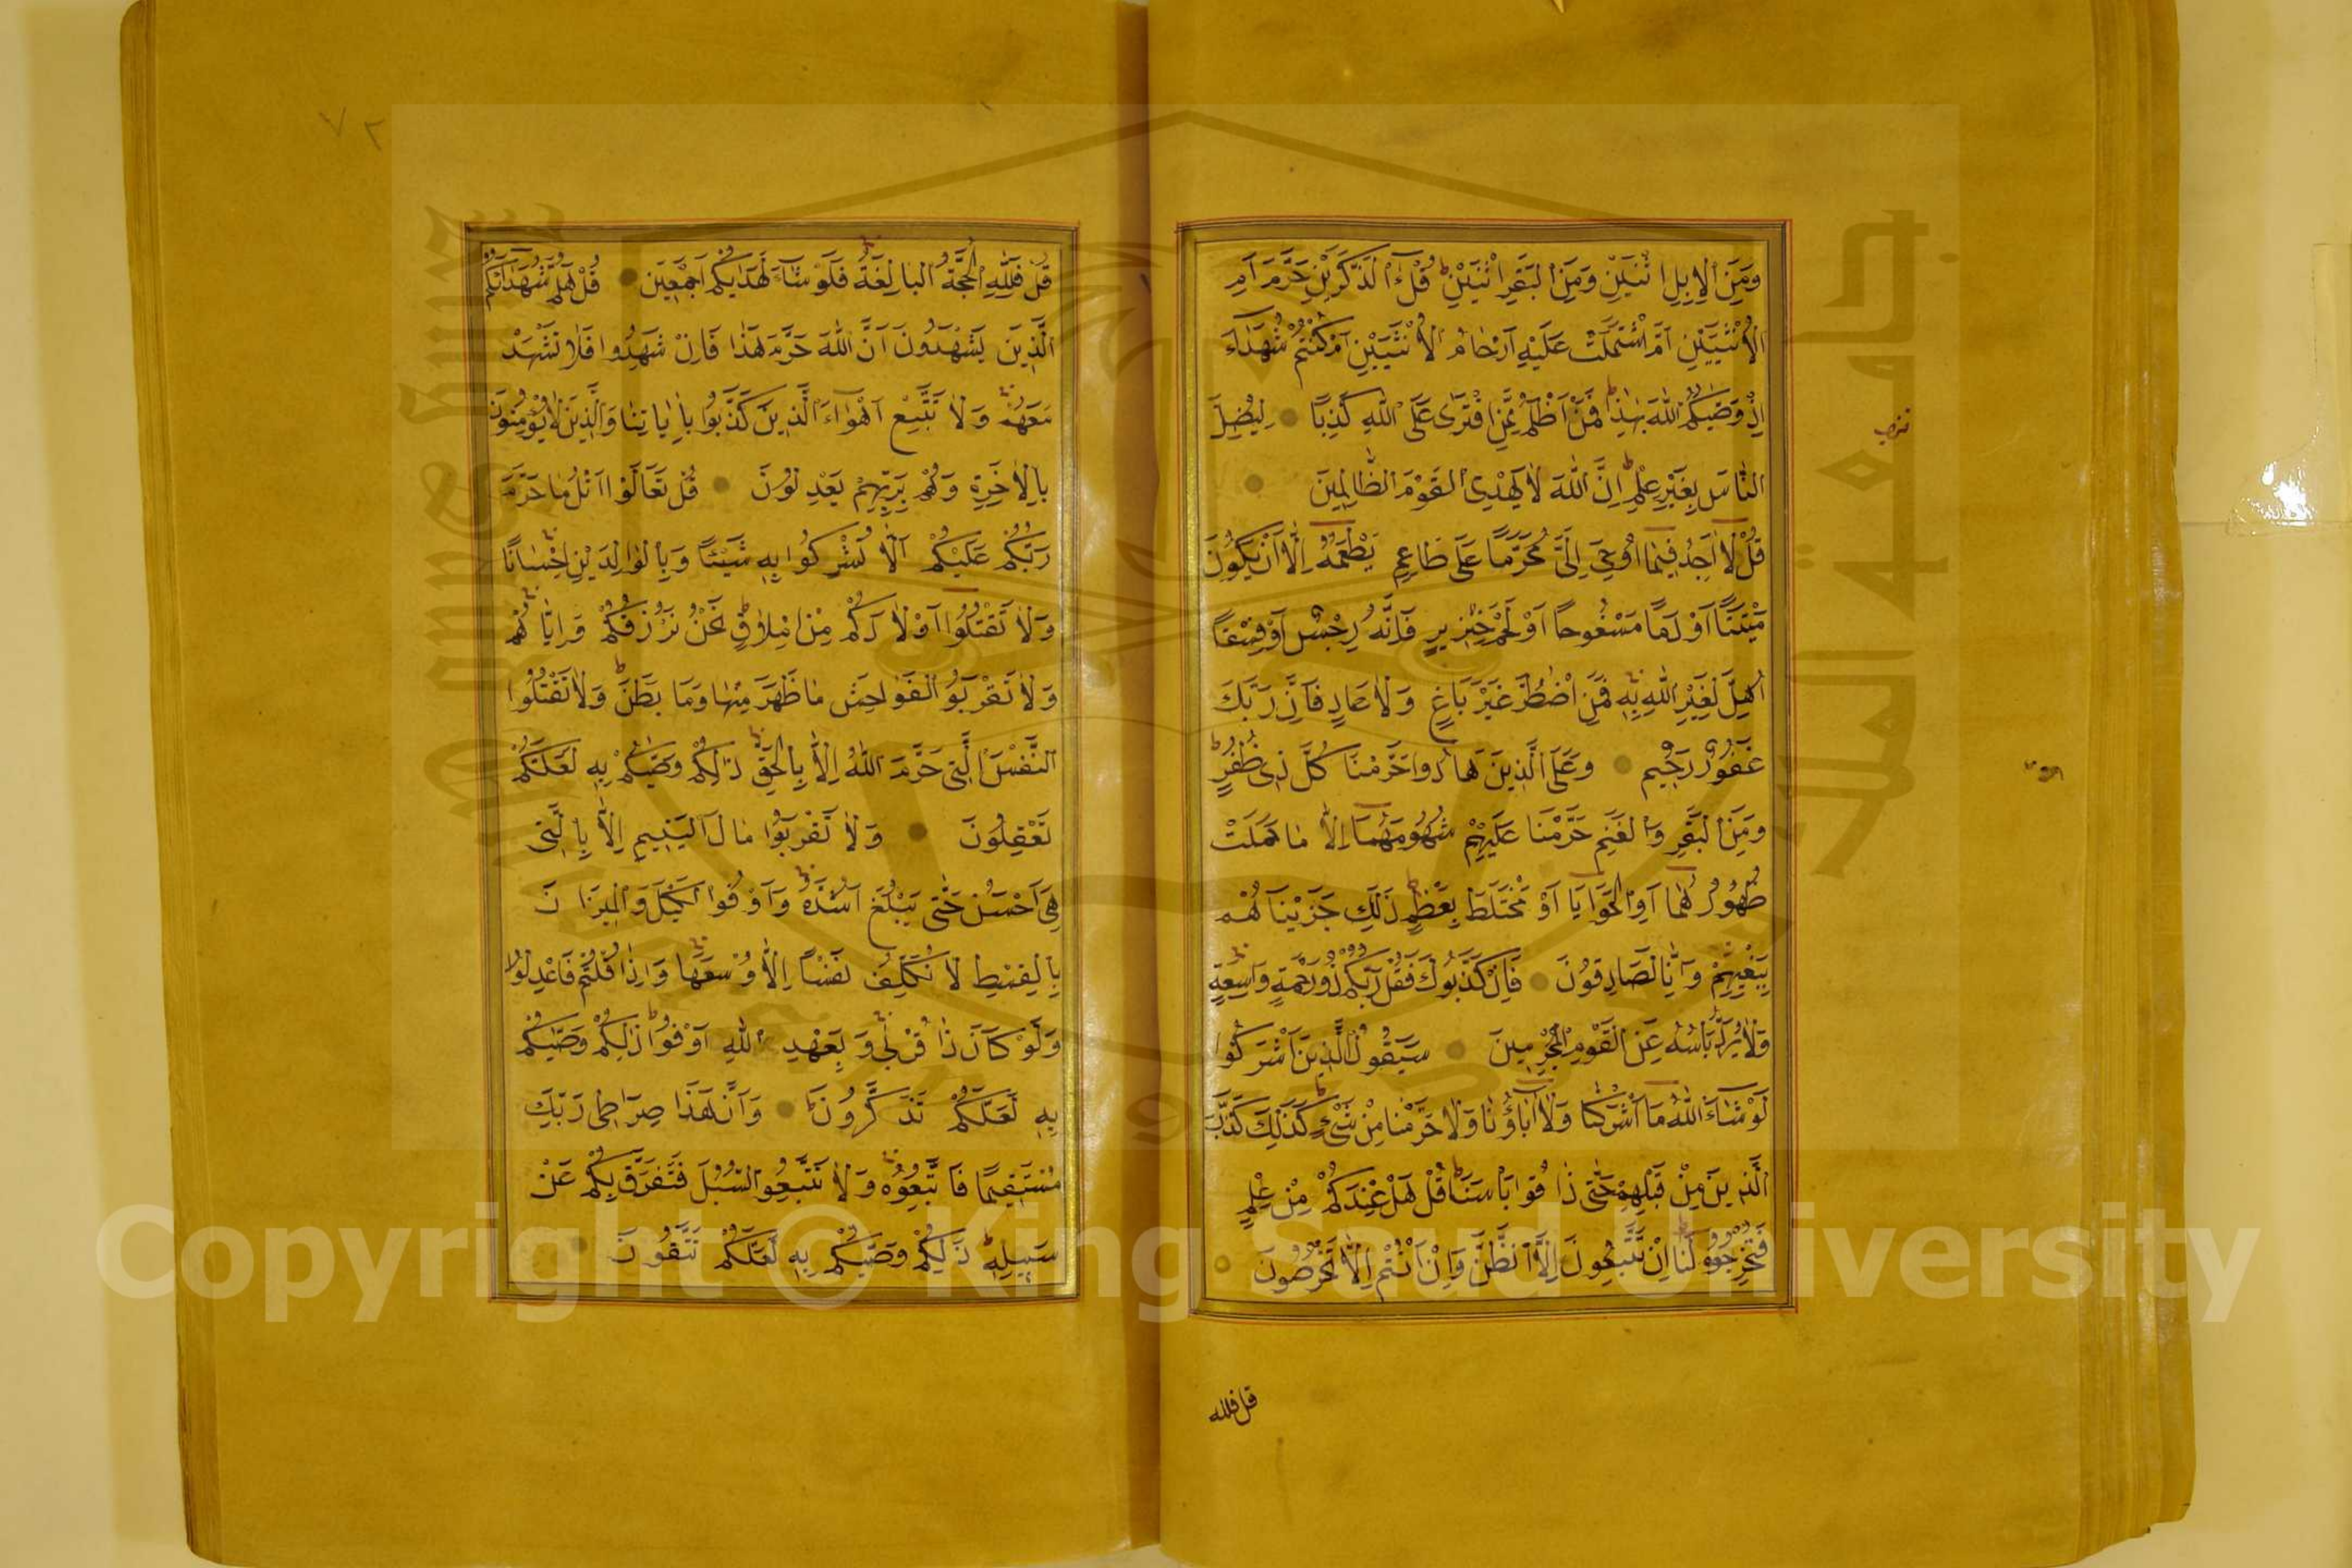 وَمِنَ الْاِبِلِ اثْنَيْنِ وَمِنَ الْبَقَرِ اثْنَيْنِ ط قُلْ ءٰٓالذَّكَرَيْنِ حَرَّمَ اَمِ
الْاُنْثَيَيْنِ اَمَّا اشْتَمَلَتْ عَلَيْهِ اَرْحَامُ الْاُنْثَيَيْنِ اَمْ كُنْتُمْ شُهَدَٓاءَ
اِذْ وَصّٰيكُمُ اللّٰهُ بِهٰذَا ط فَمَنْ اَظْلَمُ مِمَّنِ افْتَرٰى عَلَى اللّٰهِ كَذِبًا لِيُضِلَّ
النَّاسَ بِغَيْرِ عِلْمٍ ط اِنَّ اللّٰهَ لَا يَهْدِى الْقَوْمَ الظَّالِمِينَ
قُلْ لَٓا اَجِدُ فِيمَٓا اُوْحِىَ اِلَىَّ مُحَرَّمًا عَلٰى طَاعِمٍ يَطْعَمُهُٓ اِلَّٓا اَنْ يَكُونَ
مَيْتَةً اَوْ دَمًا مَسْفُوحًا اَوْ لَحْمَ خِنْزِيرٍ فَاِنَّهُ رِجْسٌ اَوْ فِسْقًا
اُهِلَّ لِغَيْرِ اللّٰهِ بِهِ فَمَنِ اضْطُرَّ غَيْرَ بَاغٍ وَلَا عَادٍ فَاِنَّ رَبَّكَ
غَفُورٌ رَحِيمٌ وَعَلَى الَّذِينَ هَادُوا حَرَّمْنَا كُلَّ ذِى ظُفُرٍ ط
وَمِنَ الْبَقَرِ وَالْغَنَمِ حَرَّمْنَا عَلَيْهِمْ شُحُومَهُمَٓا اِلَّا مَا حَمَلَتْ
ظُهُورُهُمَٓا اَوِ الْحَوَايَٓا اَوْ مَا اخْتَلَطَ بِعَظْمٍ ط ذٰلِكَ جَزَيْنَاهُمْ
بِبَغْيِهِمْ وَاِنَّا لَصَادِقُونَ فَاِنْ كَذَّبُوكَ فَقُلْ رَبُّكُمْ ذُو رَحْمَةٍ وَاسِعَةٍ
وَلَا يُرَدُّ بَأْسُهُ عَنِ الْقَوْمِ الْمُجْرِمِينَ سَيَقُولُ الَّذِينَ اَشْرَكُوا
لَوْ شَٓاءَ اللّٰهُ مَٓا اَشْرَكْنَا وَلَٓا اٰبَٓاؤُنَا وَلَا حَرَّمْنَا مِنْ شَىْءٍ ط كَذٰلِكَ كَذَّبَ
الَّذِينَ مِنْ قَبْلِهِمْ حَتّٰى ذَاقُوا بَأْسَنَا ط قُلْ هَلْ عِنْدَكُمْ مِنْ عِلْمٍ
فَتُخْرِجُوهُ لَنَا ط اِنْ تَتَّبِعُونَ اِلَّا الظَّنَّ وَاِنْ اَنْتُمْ اِلَّا تَخْرُصُونَ
قل فلله
٧٢
قُلْ فَلِلّٰهِ الْحُجَّةُ الْبَالِغَةُ فَلَوْ شَٓاءَ لَهَدٰيكُمْ اَجْمَعِينَ قُلْ هَلُمَّ شُهَدَٓاءَكُمُ
الَّذِينَ يَشْهَدُونَ اَنَّ اللّٰهَ حَرَّمَ هٰذَا فَاِنْ شَهِدُوا فَلَا تَشْهَدْ
مَعَهُمْ وَلَا تَتَّبِعْ اَهْوَٓاءَ الَّذِينَ كَذَّبُوا بِاٰيَاتِنَا وَالَّذِينَ لَا يُؤْمِنُونَ
بِالْاٰخِرَةِ وَهُمْ بِرَبِّهِمْ يَعْدِلُونَ قُلْ تَعَالَوْا اَتْلُ مَا حَرَّمَ
رَبُّكُمْ عَلَيْكُمْ اَلَّا تُشْرِكُوا بِهِ شَيْئًا وَبِالْوَالِدَيْنِ اِحْسَانًا
وَلَا تَقْتُلُٓوا اَوْلَادَكُمْ مِنْ اِمْلَاقٍ ط نَحْنُ نَرْزُقُكُمْ وَاِيَّاهُمْ
وَلَا تَقْرَبُوا الْفَوَاحِشَ مَا ظَهَرَ مِنْهَا وَمَا بَطَنَ ط وَلَا تَقْتُلُوا
النَّفْسَ الَّتِى حَرَّمَ اللّٰهُ اِلَّا بِالْحَقِّ ذٰلِكُمْ وَصّٰيكُمْ بِهِ لَعَلَّكُمْ
تَعْقِلُونَ وَلَا تَقْرَبُوا مَالَ الْيَتِيمِ اِلَّا بِالَّتِى
هِىَ اَحْسَنُ حَتّٰى يَبْلُغَ اَشُدَّهُ وَاَوْفُوا الْكَيْلَ وَالْمِيزَانَ
بِالْقِسْطِ لَا نُكَلِّفُ نَفْسًا اِلَّا وُسْعَهَا وَاِذَا قُلْتُمْ فَاعْدِلُوا
وَلَوْ كَانَ ذَا قُرْبٰى وَبِعَهْدِ اللّٰهِ اَوْفُوا ط ذٰلِكُمْ وَصّٰيكُمْ
بِهِ لَعَلَّكُمْ تَذَكَّرُونَ وَاَنَّ هٰذَا صِرَاطِى رَبِّكَ
مُسْتَقِيمًا فَاتَّبِعُوهُ وَلَا تَتَّبِعُوا السُّبُلَ فَتَفَرَّقَ بِكُمْ عَنْ
سَبِيلِهِ ط ذٰلِكُمْ وَصّٰيكُمْ بِهِ لَعَلَّكُمْ تَتَّقُونَ
Copyright © King Saud University